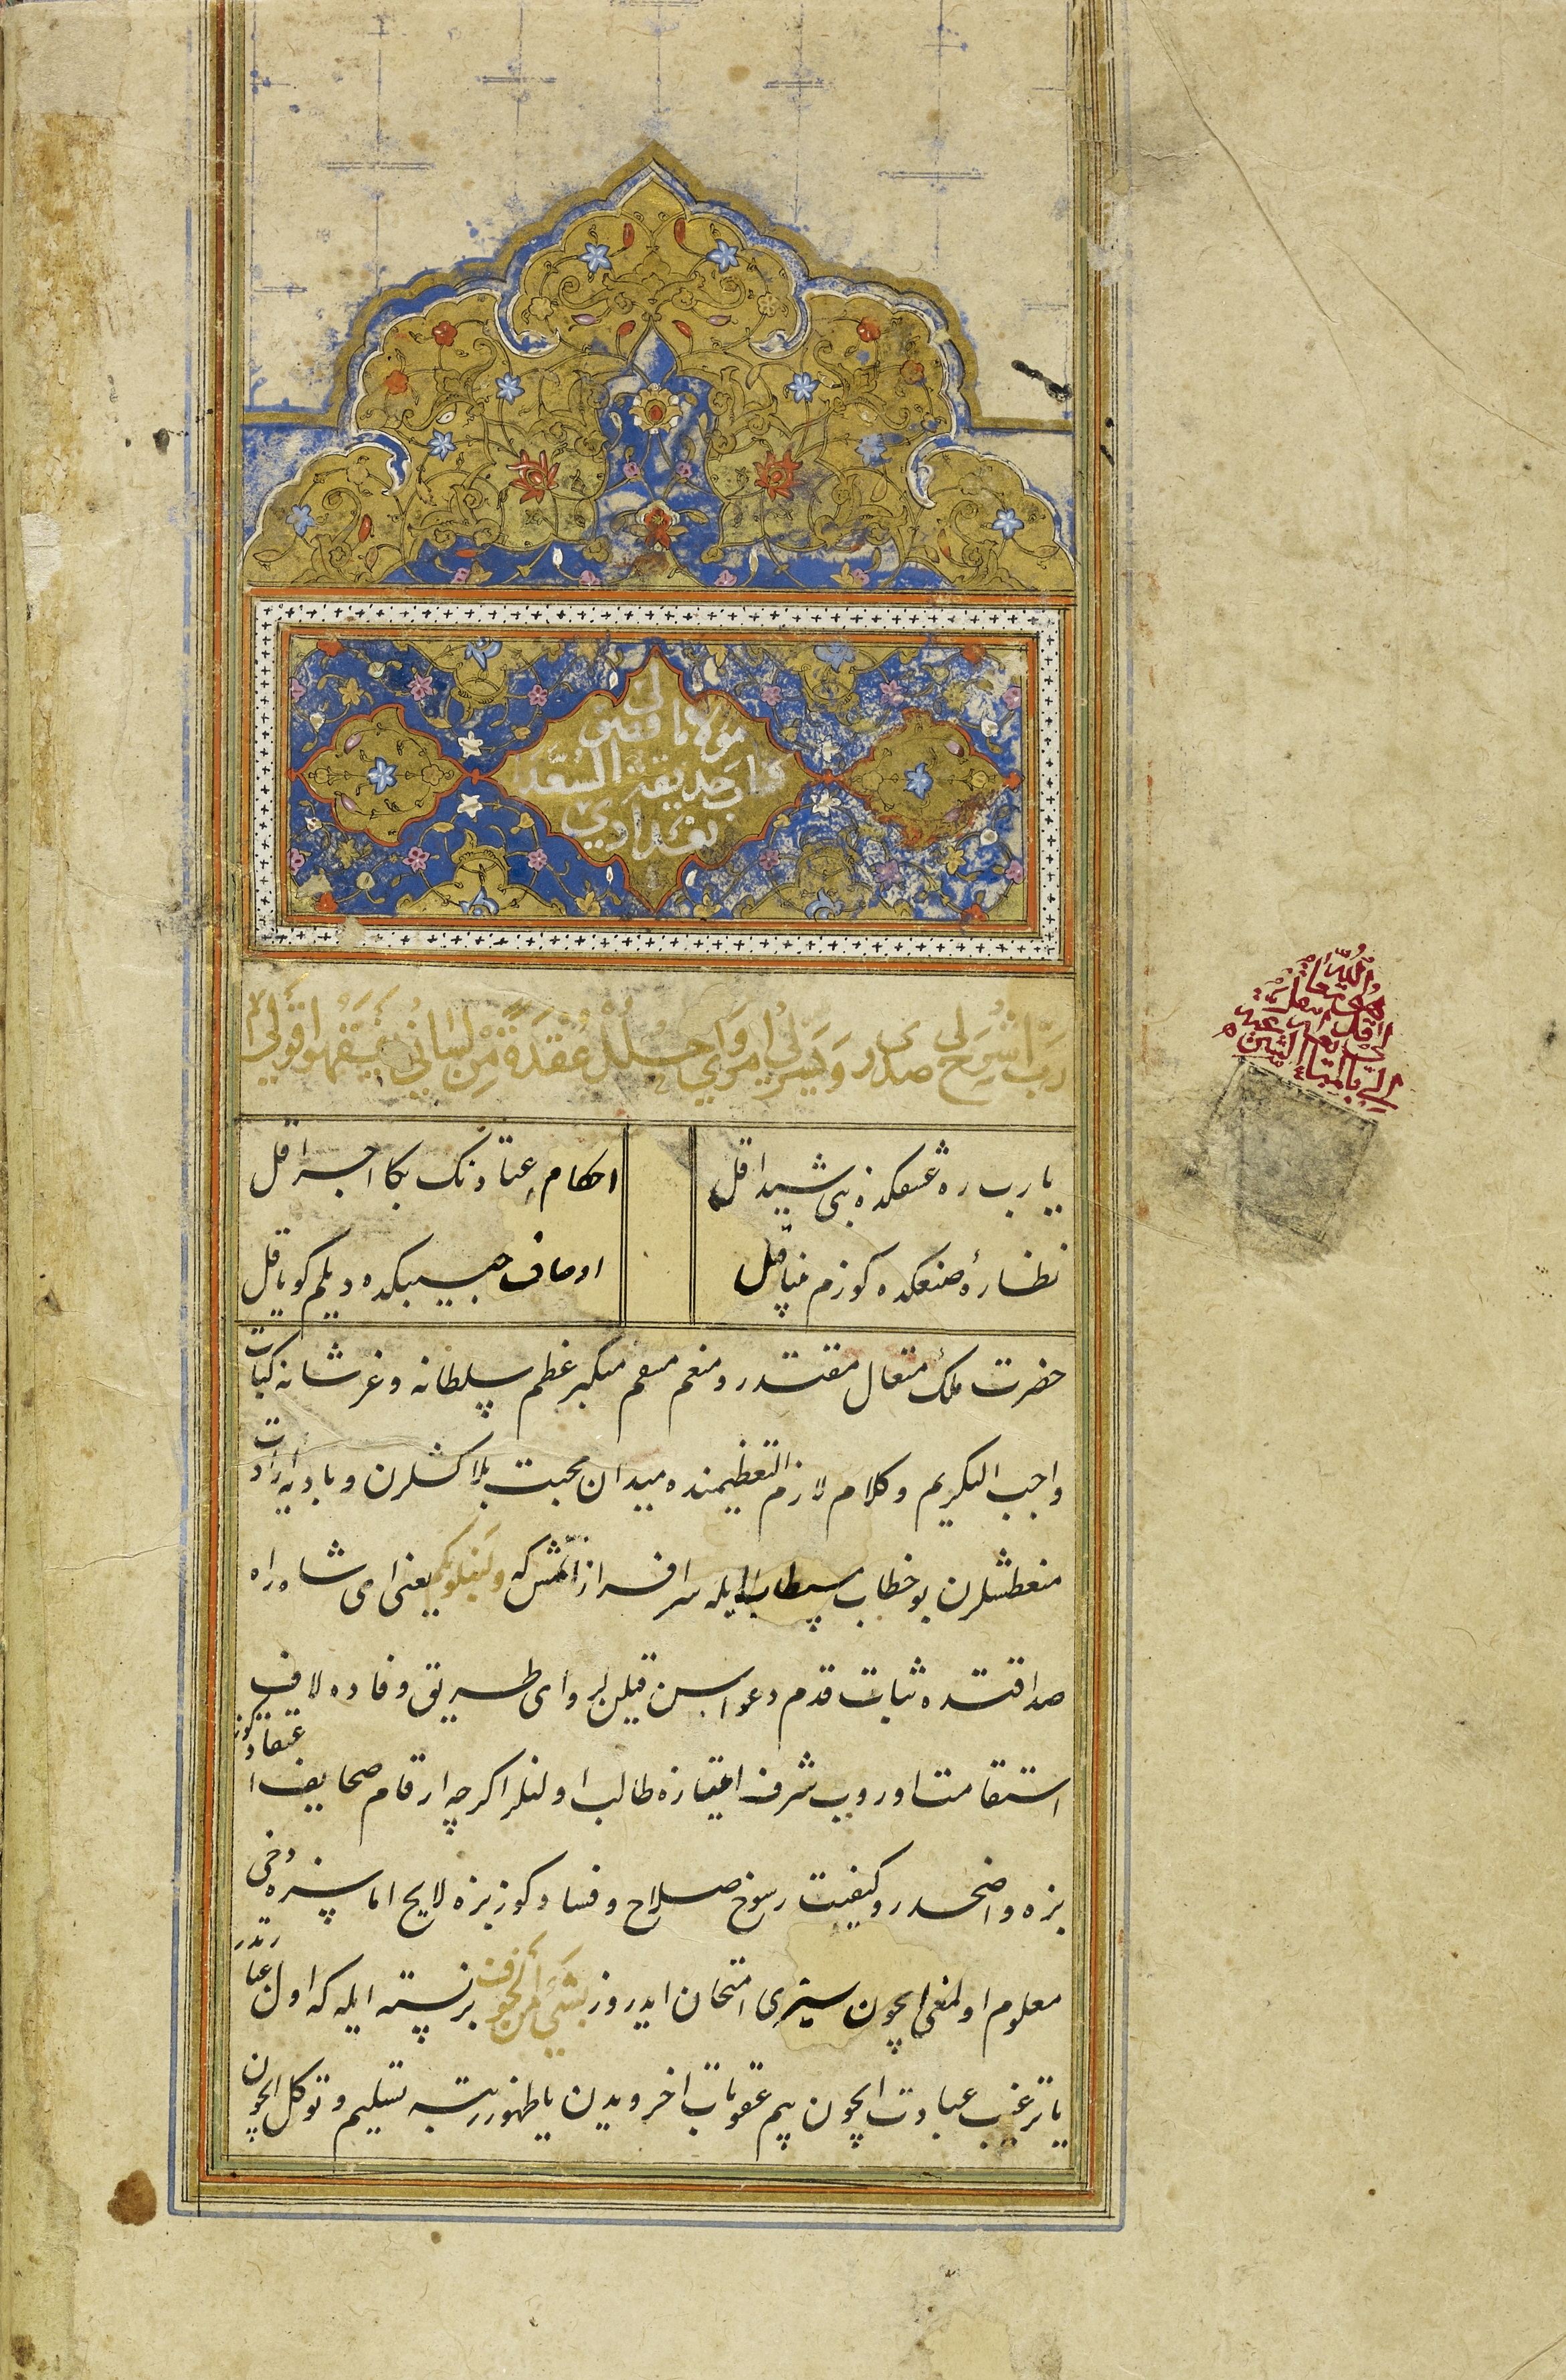 مولانا فضولی
کتاب حدیقة السعدا
بغدادي
رب اشرح لی صدری ویسر لي امري واحلل عقدة من لساني یفقهوا قولي
یا رب ره عشقکده بنی شیدا قل
احکام عبادتک بکا اجرا قل
نظارهٔ صنعکده کوزم بینا قیل
اوصاف حبیبکده دیلم کویا قل
حضرت ملک متعال مقتدر ومنعم منتقم متکبر عظم سلطانه وعز شانه کتاب
واجب التکریم وکلام لازم التعظیمنده میدان محبت بلاکشلرن وبادیهٔ ارادت
متعطشلرن بو خطاب مستطاب ایله سرافراز اتمش که ولنبلونکم یعنی ای شاه راه
صداقتده ثبات قدم دعواسن قیلنلر وای طریق وفاده لاف
استقامت اوروب شرف امتیازه طالب اولنلر اکرچه ارقام صحایف اعتقادکوز
بزه واضحدر وکیفیت رسوخ صلاح وفسادکوز بزه لایح اما سزه دخی
معلوم اولمغی ایچون سیزی امتحان ایدروز بشيء من الخوف بر نسنه ایله که اول عبارتدر
یا ترغیب عبادت ایچون بیم عقوبات اخرویدن یا ظهور رتبهٔ تسلیم وتوکل ایچون